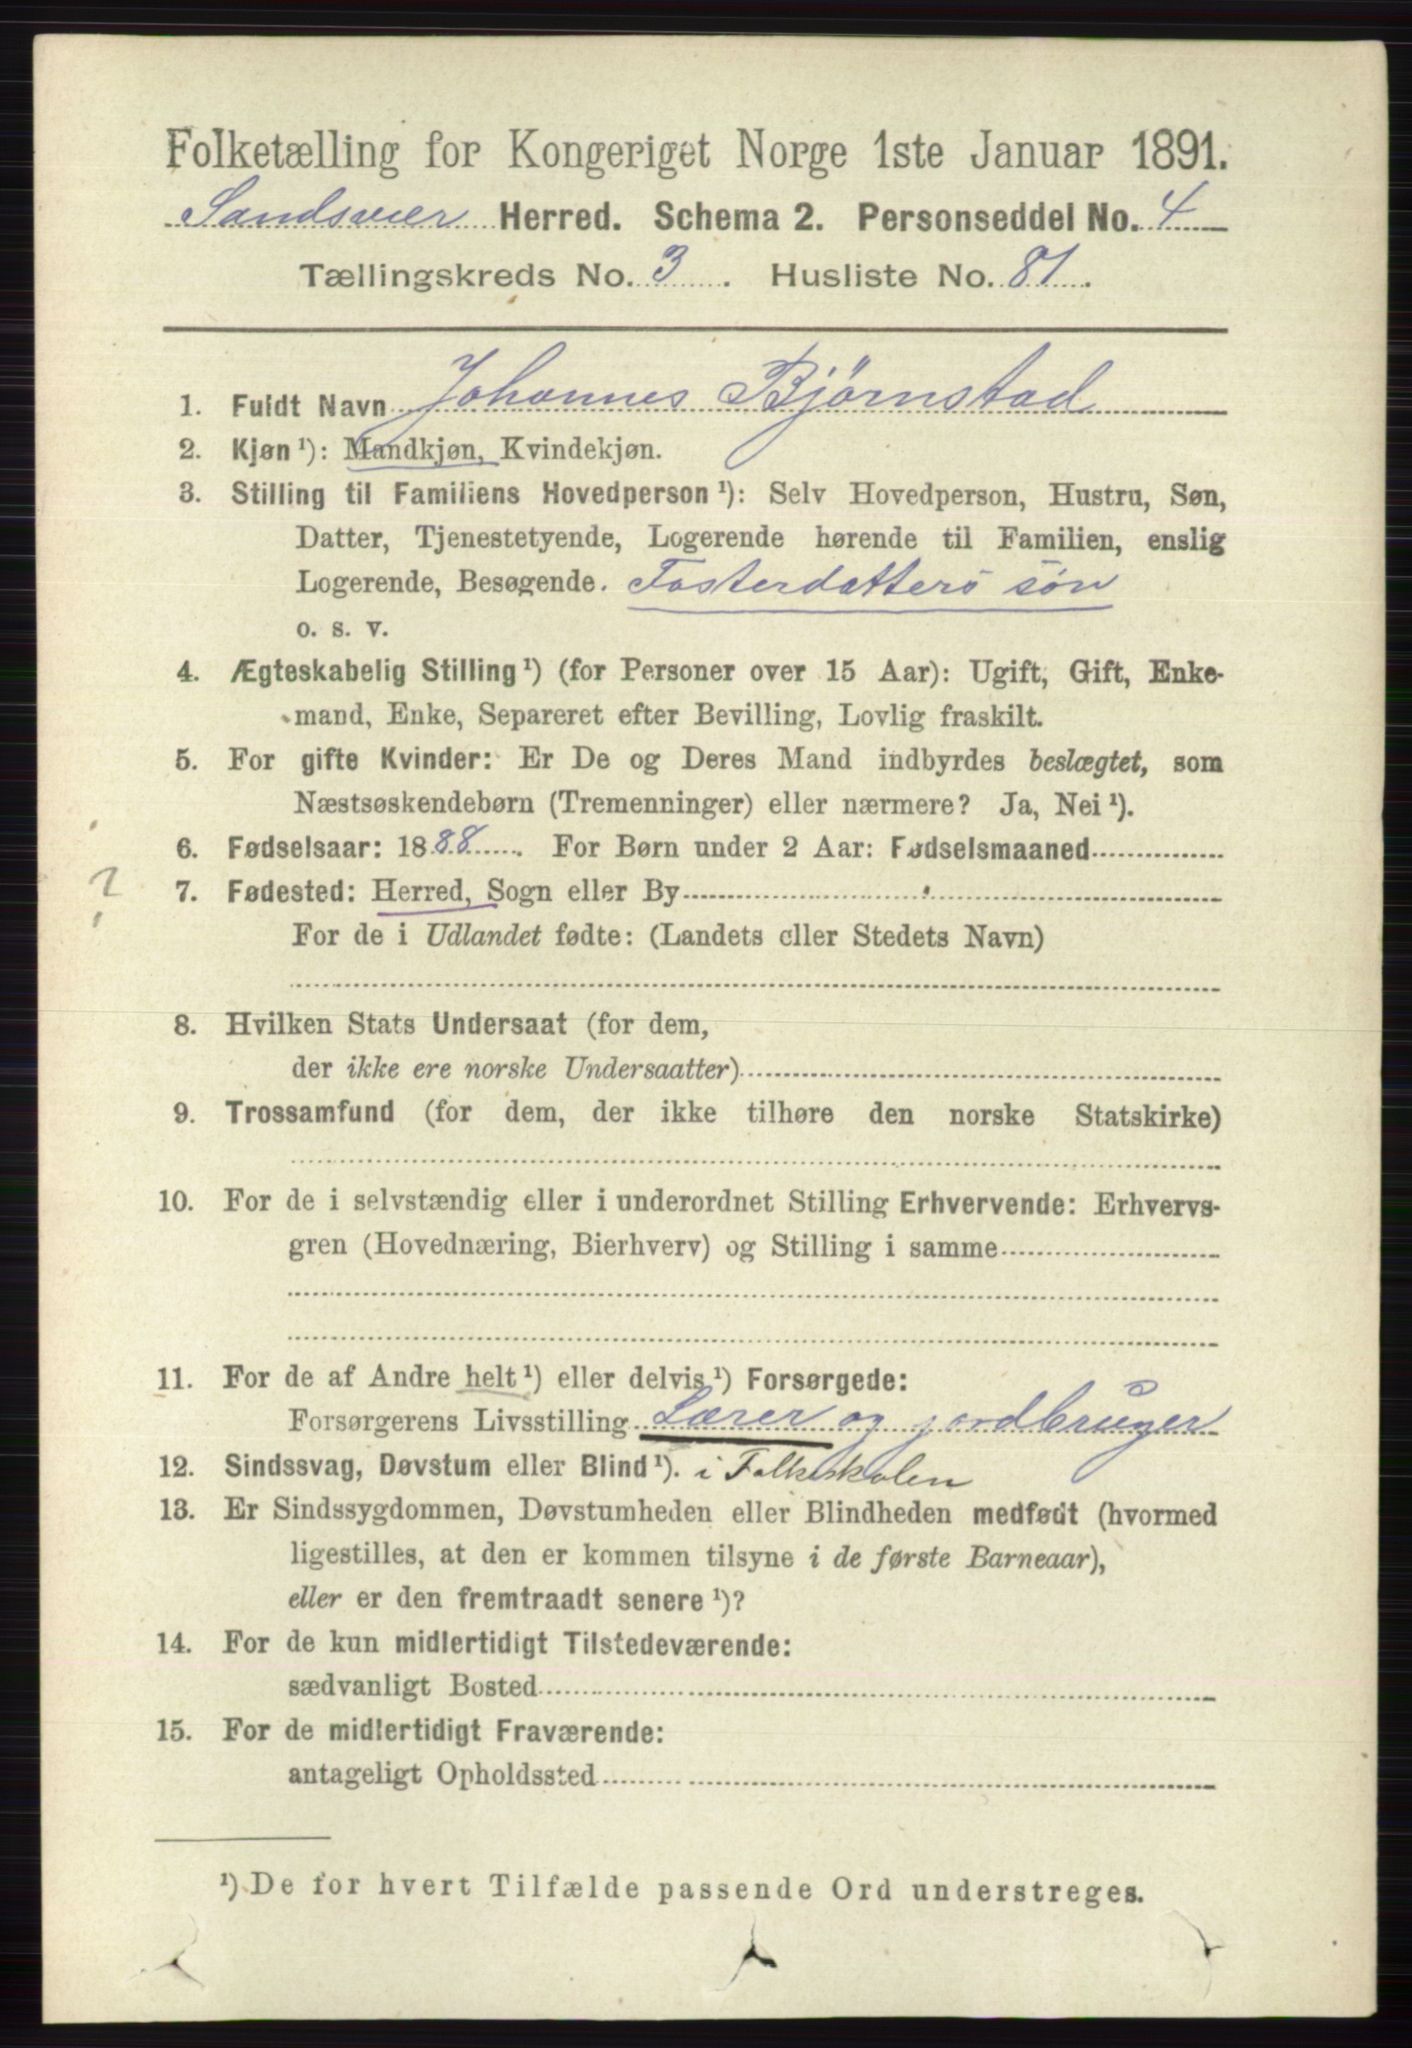 Folketælling for Kongeriget Norge 1ste Januar 1891.
Sandsveier Herred. Schema 2. Personseddel No. 4
Tællingskreds No. 3. Husliste No. 81.
1. Fuldt Navn Johannes Bjørnstad
2. Kjøn ¹): Mandkjøn, Kvindekjøn.
3. Stilling til Familiens Hovedperson ¹): Selv Hovedperson, Hustru, Søn,
Datter, Tjenestetyende, Logerende hørende til Familien, enslig
Logerende, Besøgende. Fosterdatters søn
o. s. v.
4. Ægteskabelig Stilling ¹) (for Personer over 15 Aar): Ugift, Gift, Enke-
mand, Enke, Separeret efter Bevilling, Lovlig fraskilt.
5. For gifte Kvinder: Er De og Deres Mand indbyrdes beslægtet, som
Næstsøskendebørn (Tremenninger) eller nærmere? Ja, Nei ¹).
6. Fødselsaar: 1888. For Børn under 2 Aar: Fødselsmaaned
? 7. Fødested: Herred, Sogn eller By
For de i Udlandet fødte: (Landets eller Stedets Navn)
8. Hvilken Stats Undersaat (for dem,
der ikke ere norske Undersaatter)
9. Trossamfund (for dem, der ikke tilhøre den norske Statskirke)
10. For de i selvstændig eller i underordnet Stilling Erhvervende: Erhvervs-
gren (Hovednæring, Bierhverv) og Stilling i samme
11. For de af Andre helt ¹) eller delvis ¹) Forsørgede:
Forsørgerens Livsstilling Lærer og jordbruger
12. Sindssvag, Døvstum eller Blind ¹). i Folkeskolen
13. Er Sindssygdommen, Døvstumheden eller Blindheden medfødt (hvormed
ligestilles, at den er kommen tilsyne i de første Barneaar),
eller er den fremtraadt senere ¹)?
14. For de kun midlertidigt Tilstedeværende:
sædvanligt Bosted
15. For de midlertidigt Fraværende:
antageligt Opholdssted
¹) De for hvert Tilfælde passende Ord understreges.